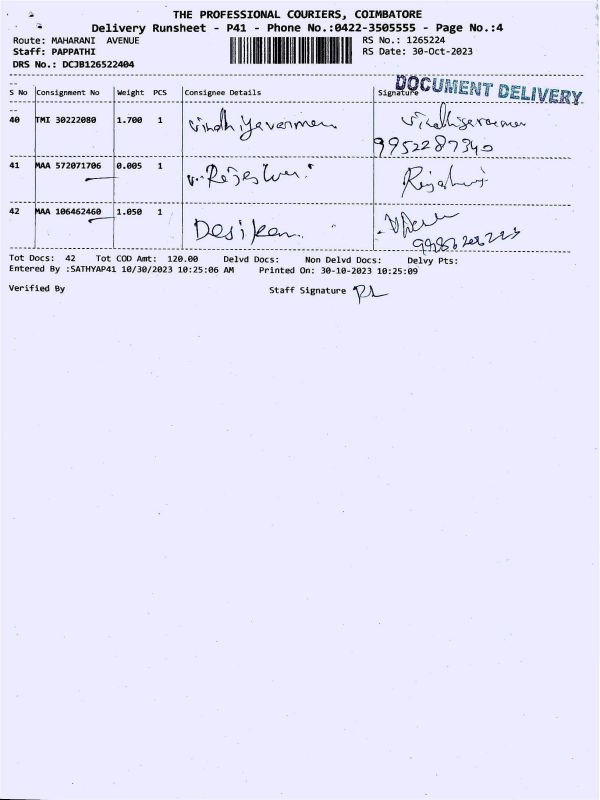 THE PROFESSIONAL COURIERS, COIMBATORE
Delivery Runsheet - P41 - Phone No.:0422-3505555 - Page No.:4
Route: MAHARANI AVENUE RS No.: 1265224
Staff: PAPPATHI RS Date: 30-Oct-2023
DRS No.: DCJB126522404
DOCUMENT DELIVERY
S No Consignment No Weight PCS Consignee Details Signature
40 TMI 30222080 1.700 1
9952287340
41 MAA 572071706 0.005 1
42 MAA 106462460 1.050 1 Desikan
Tot Docs: 42 Tot COD Amt: 120.00 Delvd Docs: Non Delvd Docs: Delvy Pts:
Entered By :SATHYAP41 10/30/2023 10:25:06 AM Printed On: 30-10-2023 10:25:09
Verified By Staff Signature